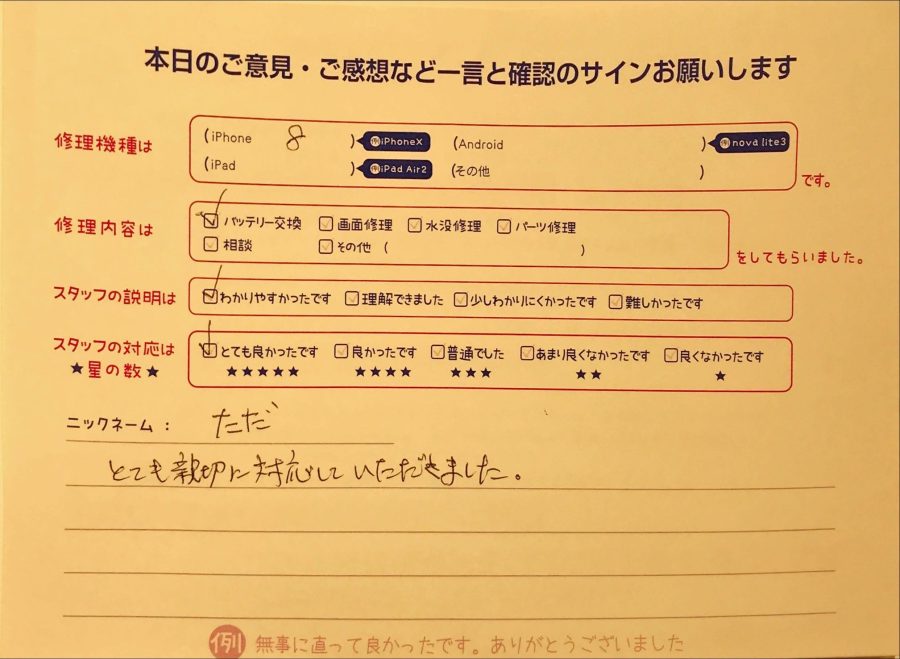 本日のご意見・ご感想など一言と確認のサインお願いします
修理機種は (iPhone 8 ) 例iPhoneX (Android ) 例nova lite3
(iPad ) 例iPad Air2 (その他 ) です。
修理内容は バッテリー交換 画面修理 水没修理 パーツ修理
相談 その他 ( ) をしてもらいました。
スタッフの説明は わかりやすかったです 理解できました 少しわかりにくかったです 難しかったです
スタッフの対応は とても良かったです 良かったです 普通でした あまり良くなかったです 良くなかったです
★星の数★ ★★★★★ ★★★★ ★★★ ★★ ★
ニックネーム: ただ
とても親切に対応していただきました。
例 無事に直って良かったです。ありがとうございました